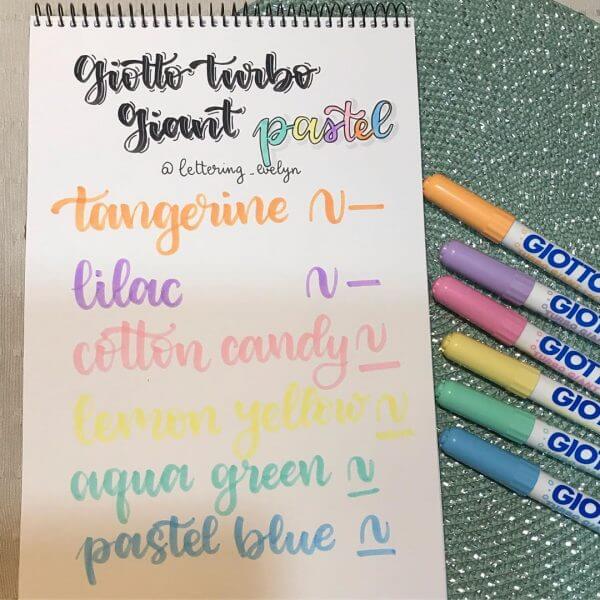 Giotto turbo
Giant pastel
@lettering_evelyn
tangerine
lilac
cotton candy
lemon yellow
aqua green
pastel blue
GIOTTO
GIOTT
GIOTT
GIOT
GIOT
GIOT